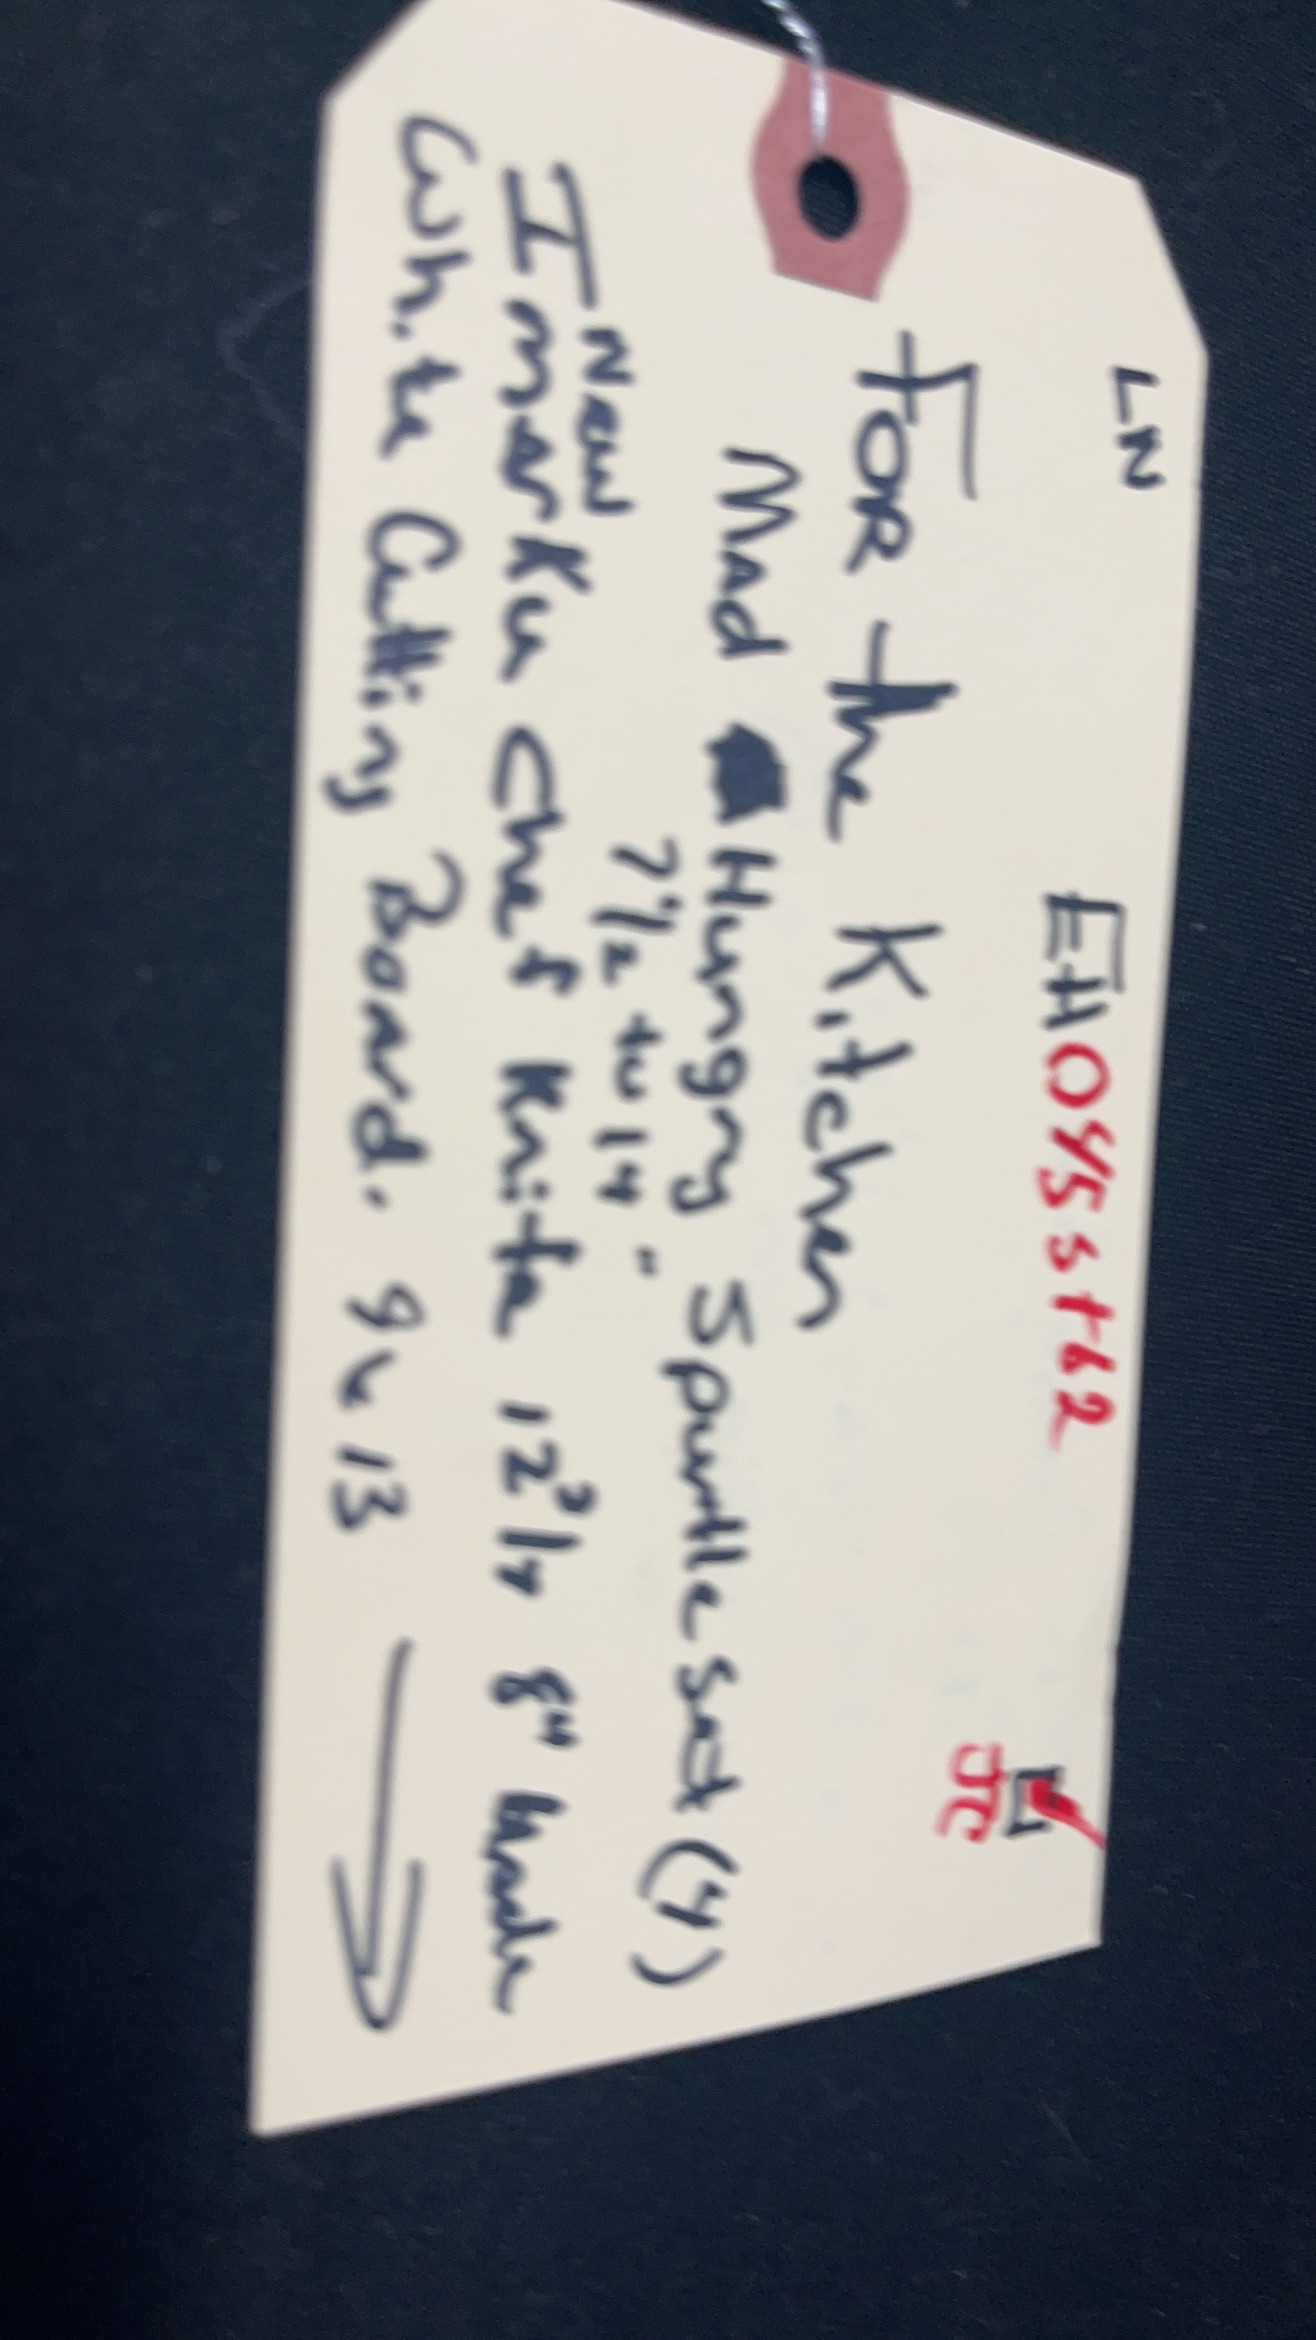 LN EHO455162
JC
FOR the Kitchen
Mad Hungry Spurtle Set (4)
7 1/2 to 14"
New
Imarku Chef Knife 12 3/4 8" blade
White Cutting Board. 9x13